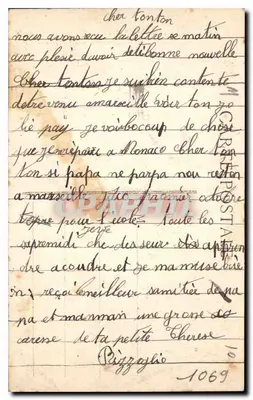 cher tonton
nous avons reçu la lettre se matin
avec plesir davoir de ebonne nouvelle
Cher tonton je suis bien contente
detre venu a marseille voir ton jo
li pay je voi bocoup de chose
que je ne vepau a Monaco Cher ton
ton si papa ne par pa nou reston
a marseille jusqua octobre
pour l'ecole toute les
apremidi ché des seur apren
dre a coudre et je mamuse bie
n, reçoi lemeilleur samitiée de pa
pa et manman une grose
carese de ta petite Therese
Rizzoglio
1069
CARTE POSTALE